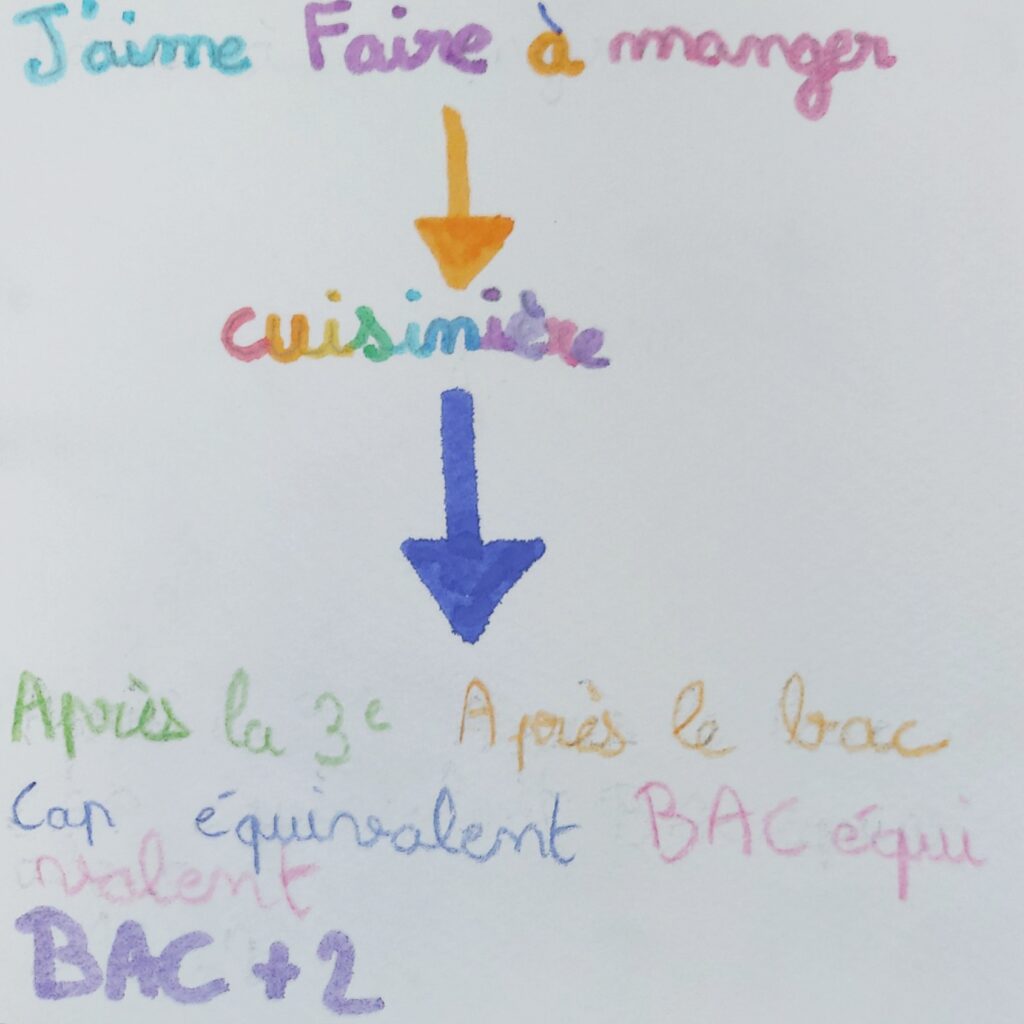 J'aime Faire à manger
cuisinière
Après la 3e Après le bac
Cap équivalent BAC équi
valent
BAC + 2